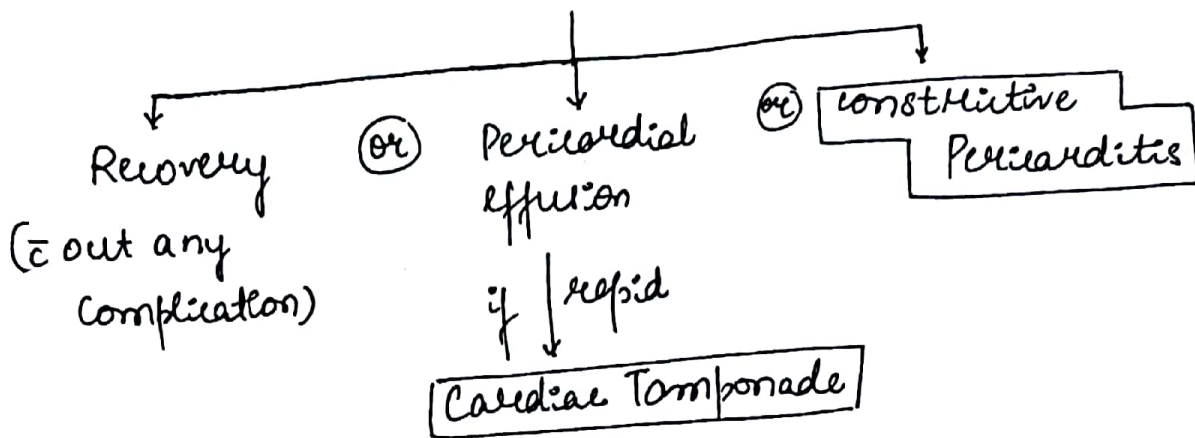 Recovery
(c̄ out any
complication)
or
Pericardial
effusion
if rapid
Cardiac Tamponade
or
constrictive
Pericarditis